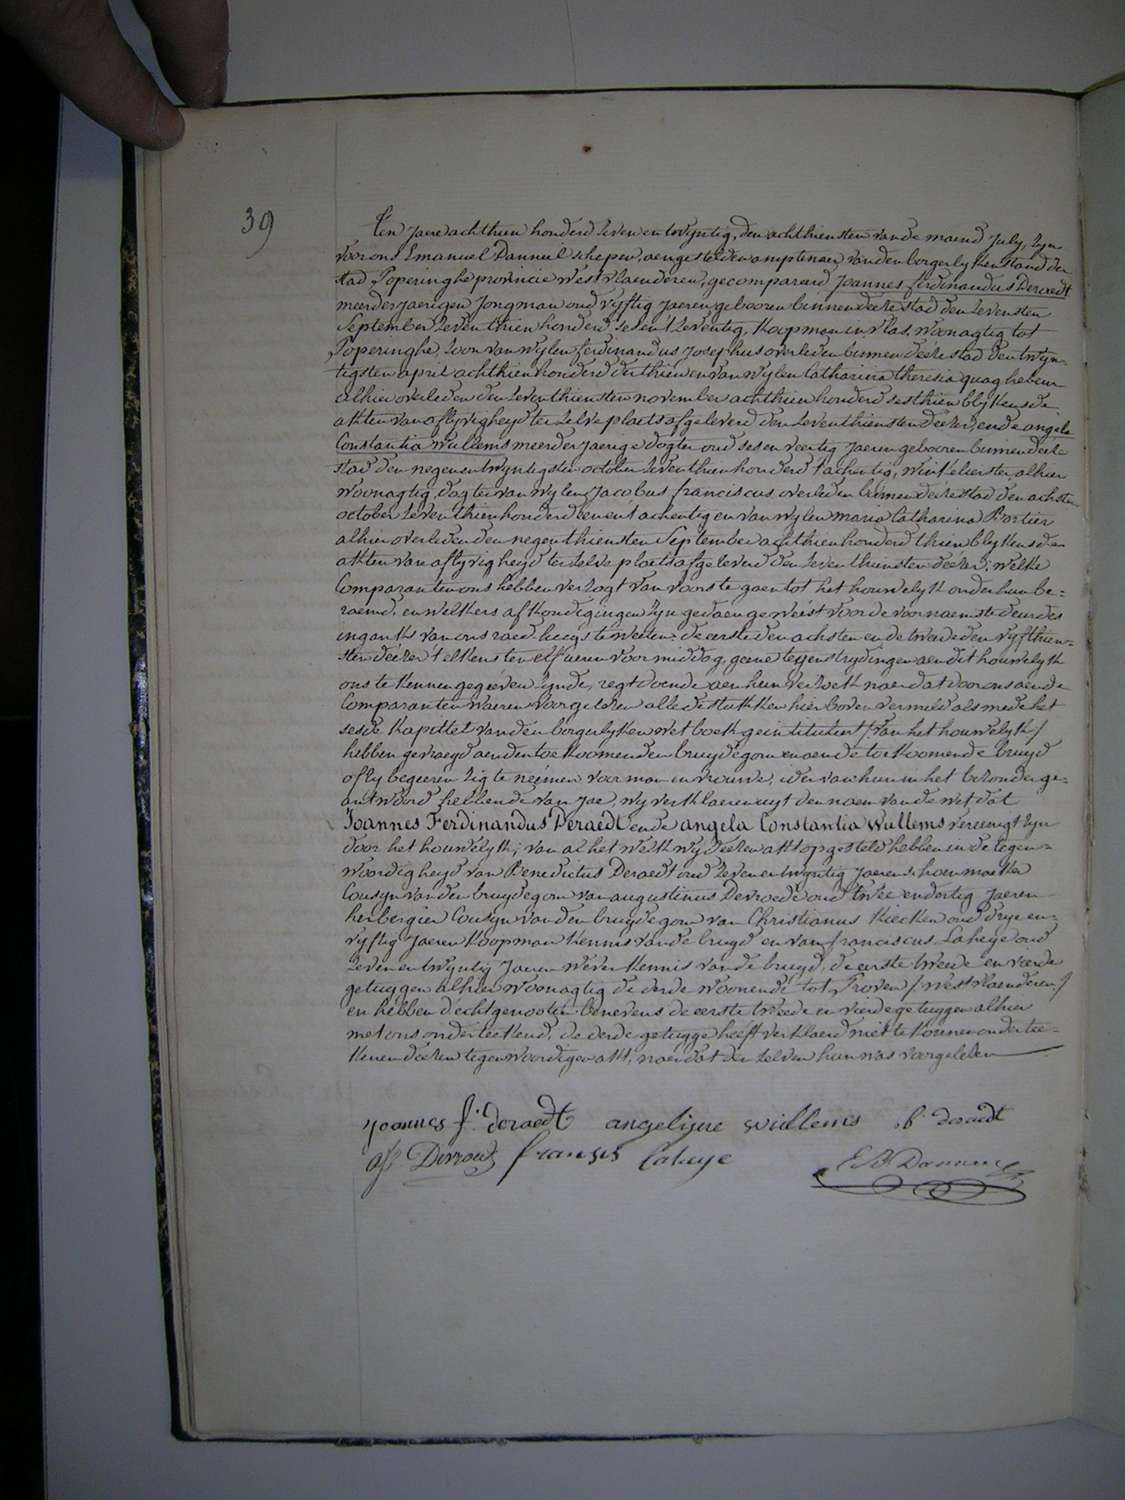 39
Ten Jaere achthien honderd zeven en twyntig, den achthiensten van de maend July, zyn
voor ons Emanuel Danneel schepen, aengestelden amptenaer van den borgerlyken stand der
stad Poperinghe provincie West vlaenderen, gecompareerd Joannes ferdinandus Deraedt
meerderjaerigen Jongman oud vyftig Jaeren gebooren binnen deeze stad den zevensten
September zeventhien honderd sesent zeventig, Koopman in vlas, woonagtig tot
Poperinghe, zoon van wylen ferdinandus Josephus overleden binnen deeze stad den twyn-
tigsten april achthien honderd derthien en van wylen Catharina theresia quaghebeur
alhier overleden den zeventhiensten november achthien honderd sesthien blykens de
akten van aflyvigheyd ter zelve plaets afgeleverd den zeventhiensten deezer, ende angela
Constantia Wullems meerderjaerige dogter oud ses en veertig Jaeren gebooren binnen deeze
stad den negen en twyntigsten october zeventhien honderd tachentig, winkelierster, alhier
woonagtig, dogter van wylen Jacobus franciscus overleden binnen deeze stad den achsten
october zeventhien honderd een en tachentig en van wylen maria Catharina Portier
alhier overleden den negenthiensten September achthien honderd thien blykens de
akten van aflyvigheyd ter zelve plaets afgeleverd den zeventhiensten deezer; welke
Comparanten ons hebben verzogt van voorts te gaen tot het houwelyk onder hun be=
raemd, en welkers afkondigingen zyn gedaen geweist voor de voornaemste deur des
ingangs van ons raed huys te weten: de eerste den achsten en de tweede den vyfthien=
sten deezer telkens ten elf ueren voormiddag, geene tegenstrydingen aen dit houwelyk
ons te kennen gegeven zynde, regt doende aen hun verzoek naer dat door ons aen de
Comparanten waeren voorgelezen alle de stukken hier boven vermeld als mede het
sesde kapittel van den borgerlyken wet boek geintituleert /van het houwelyk/
hebben gevraegd aen den toekoomenden bruydegom en aen de toekoomende bruyd
of zy begeeren zig te neemen voor man en vrouwe, ider van hun in het bezonder ge=
antwoord hebbende van Jae, wy verklaeren uyt den naem van de wet dat
Joannes Ferdinandus Deraedt ende angela Constantia Wullems vereenigt zyn
door het houwelyk; van al het welk wy deezen akt opgesteld hebben in de tegen=
woordigheyd van Benedictus Deraedt oud zeven en twyntig Jaeren schoenmaeker
Cousyn van den bruydegom van augustinus Devroede oud twee en dertig Jaeren
herbergier Cousyn van den bruydegom van Christianus Kiecken oud drye en=
vyftig Jaeren Koopman kennis van de bruyd en van franciscus Laheye oud
zeven en twyntig Jaeren wever kennis van de bruyd, de eerste tweede en vierde
getuygen alhier woonagtig de derde woonende tot Proven /west vlaenderen/
en hebben d'echtgenooten benevens de eerste tweede en vierde getuygen alhier
met ons onderteekend, de derde getuyge heeft verklaerd niet te konnen ondertee=
kenen deezen tegenwoordigen akt, naer dat den zelven hun was voorgelezen
joannes f. deraedt angelijne wullems b deraedt
francys Laheye